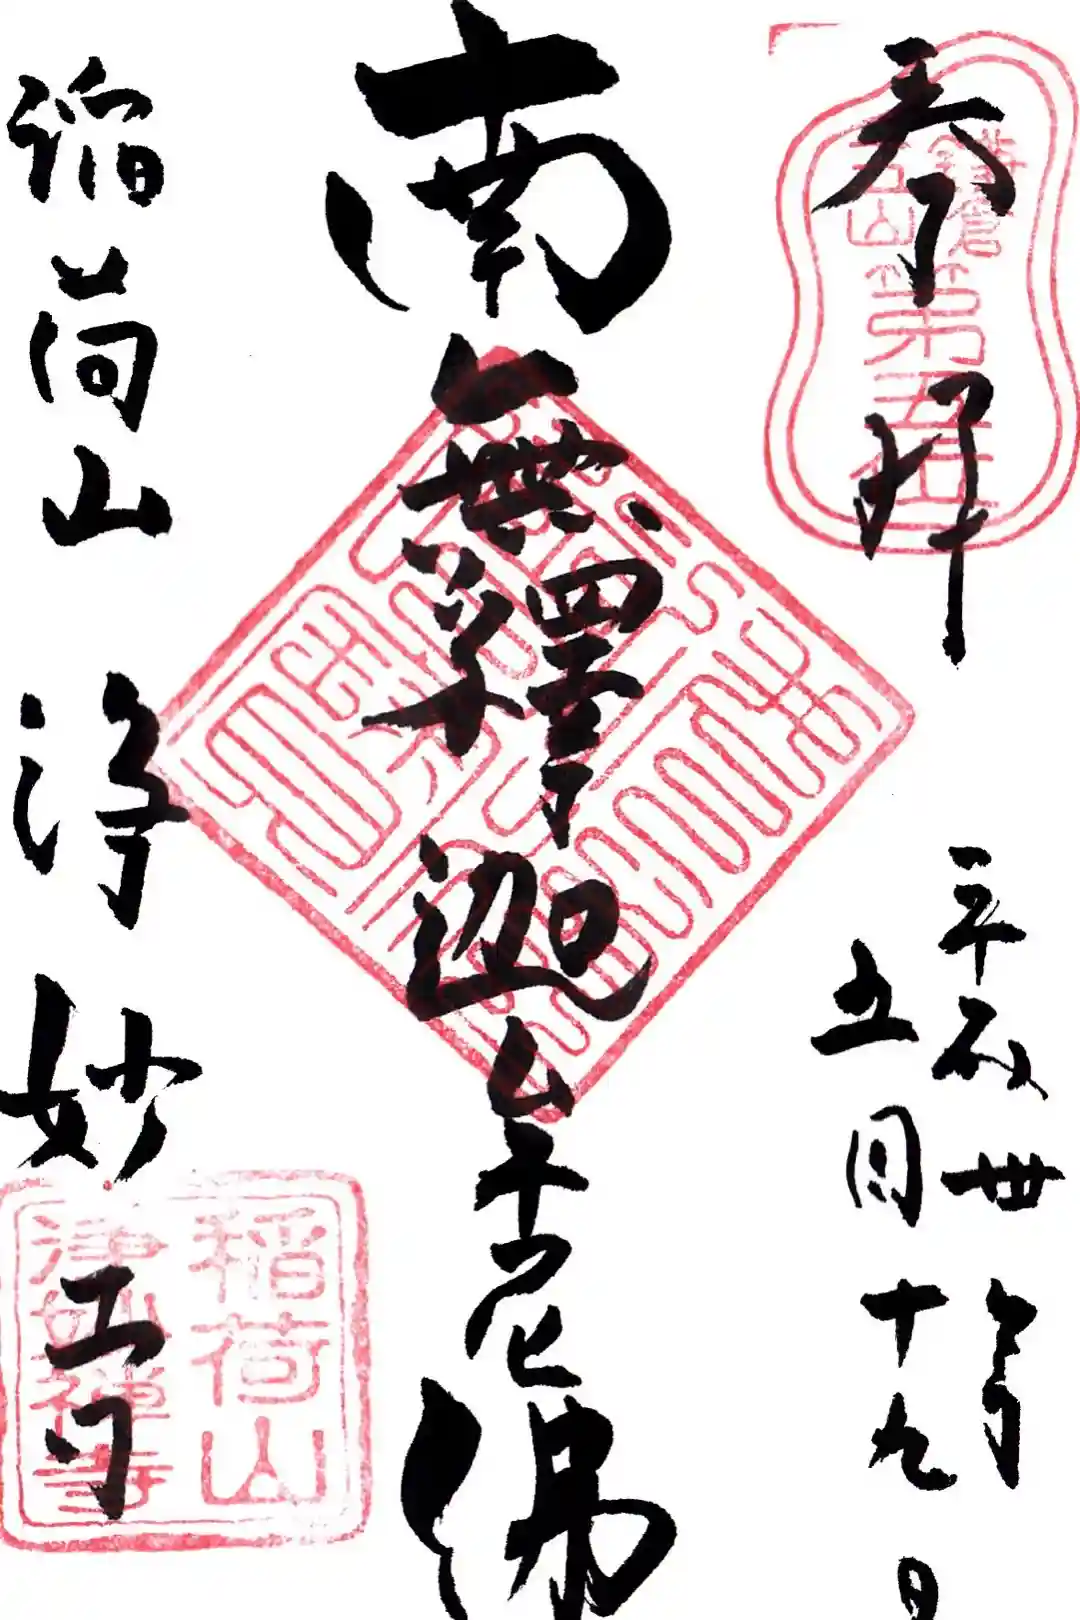 奉拝
鎌倉
五山
第五位
平成卅年
五月十九日
南無釋迦牟尼佛
稲荷山 浄妙寺
稲荷山
浄妙禅寺